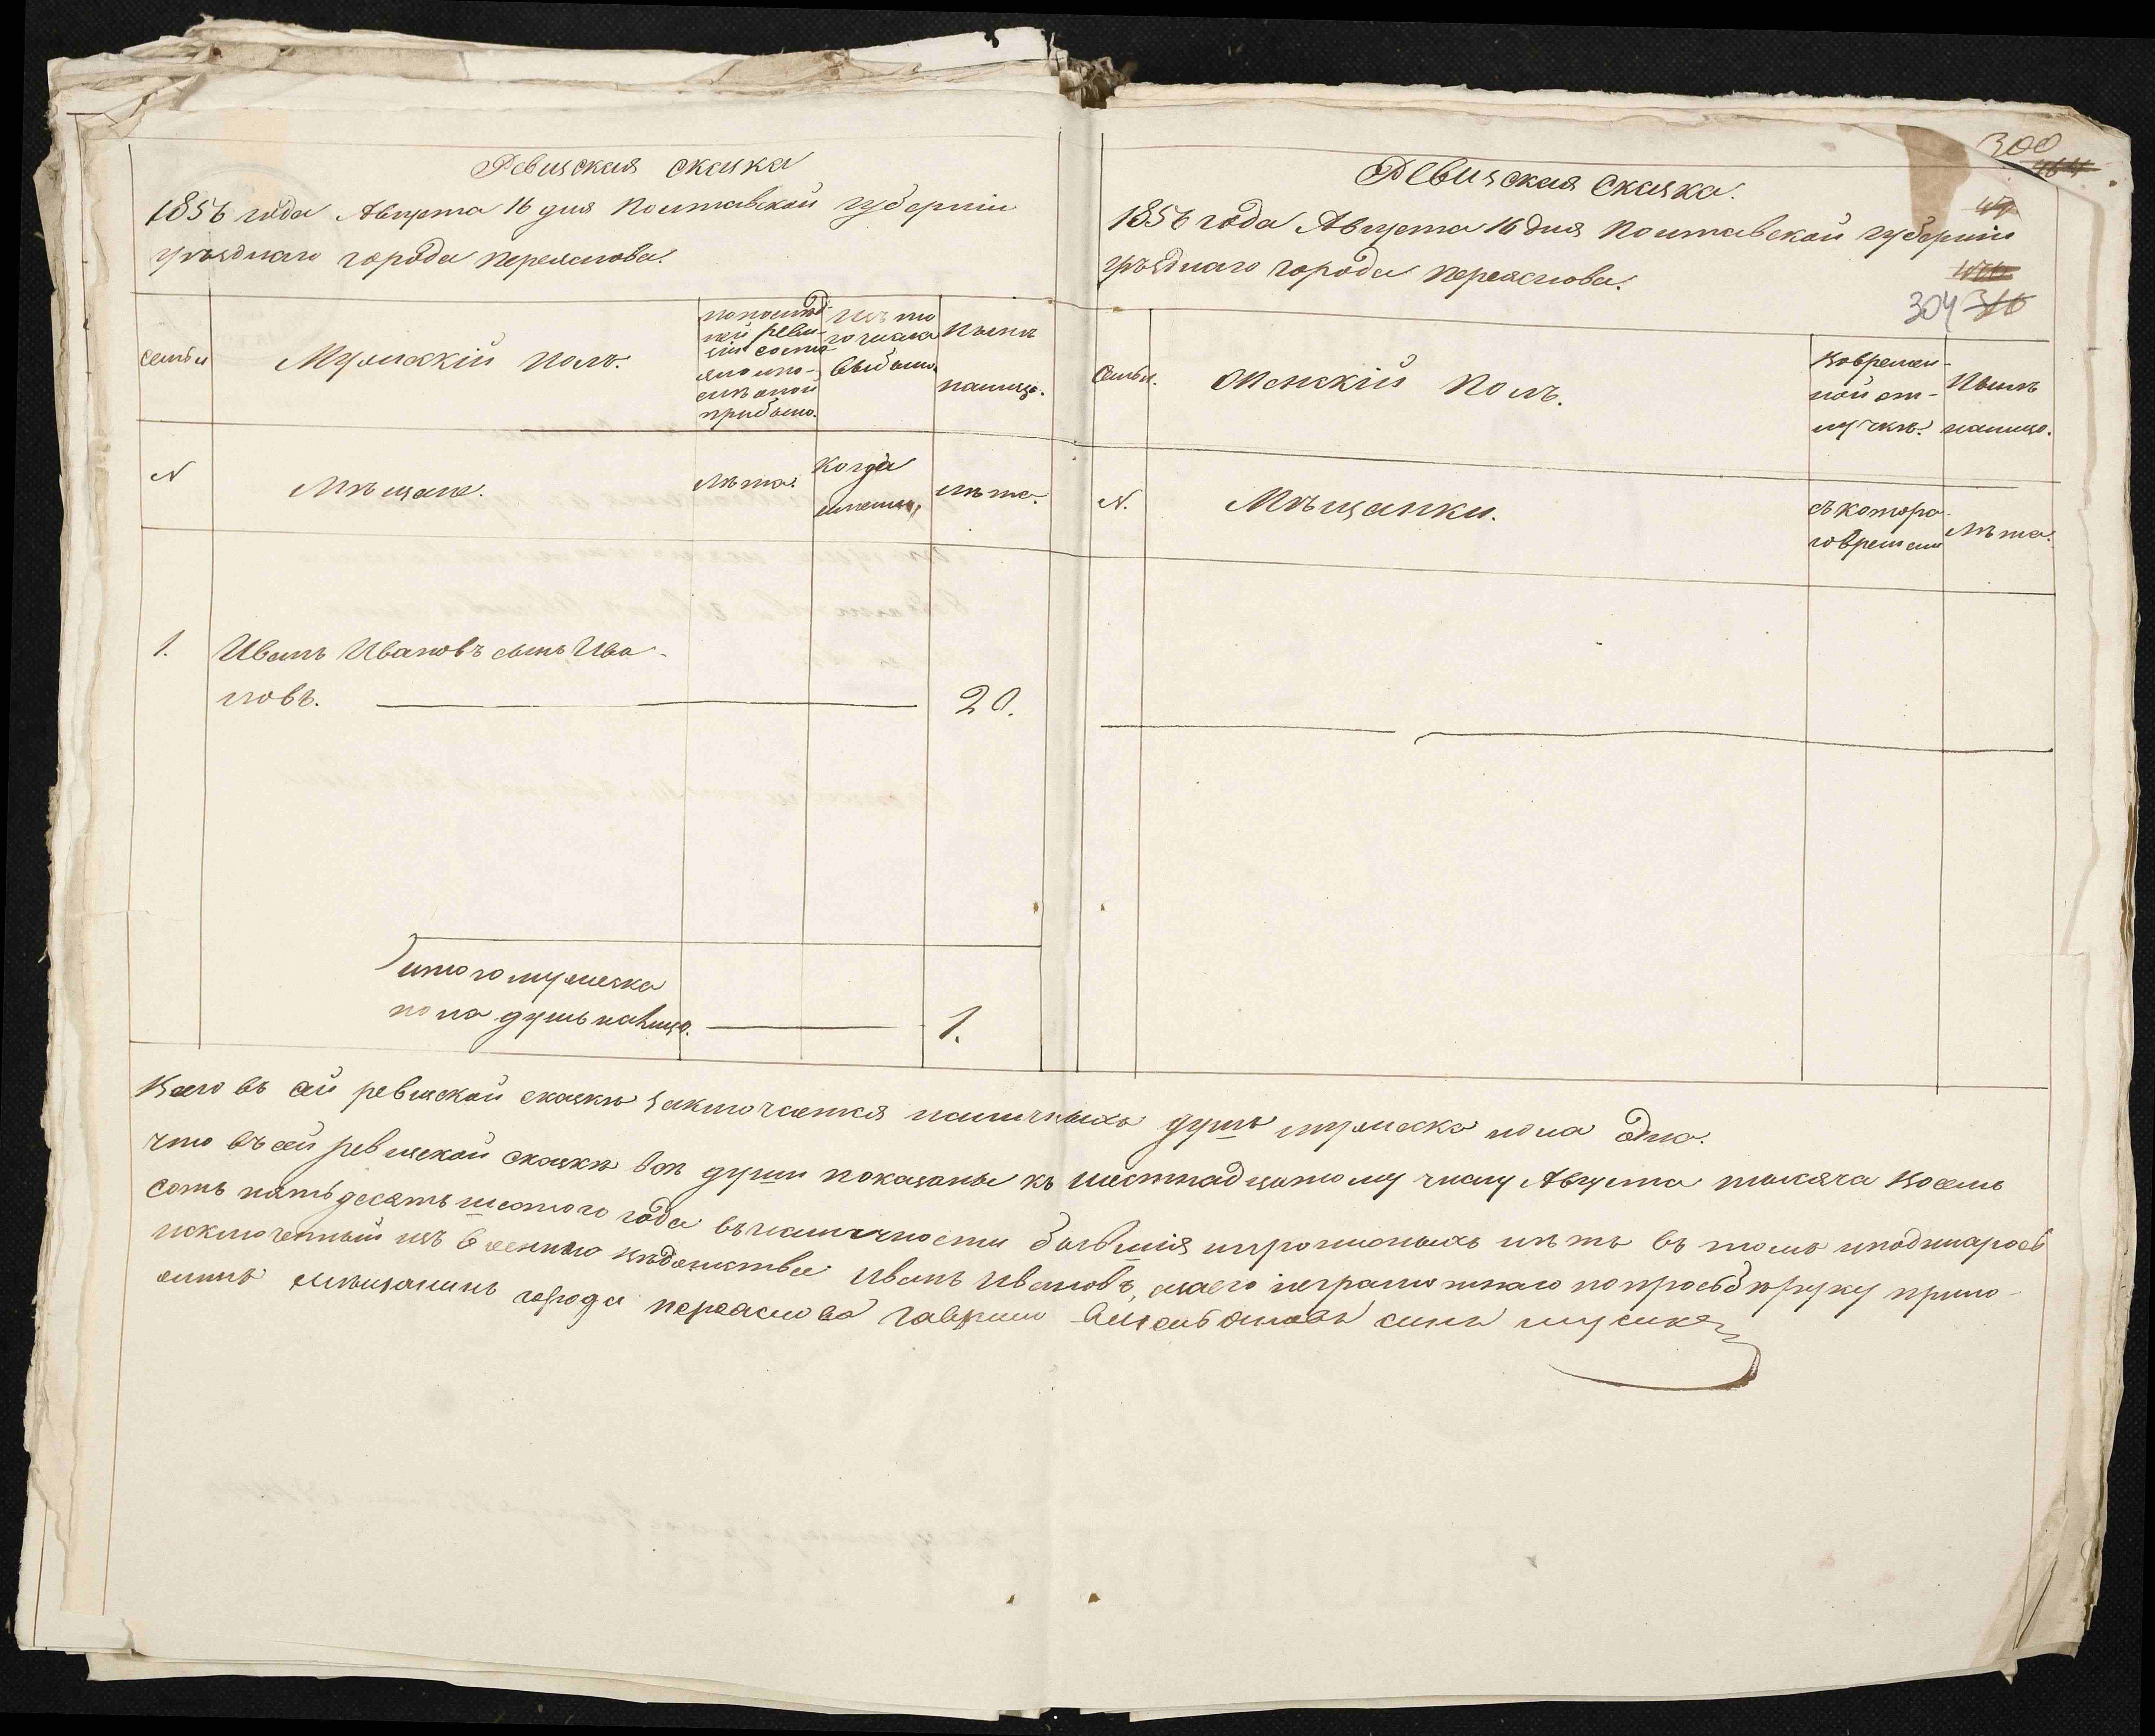 Ревизская сказка
1856 года Августа 16 дня Полтавской губернiи
уѣзднаго города Переяслова.
Семьи
Мужескiй полъ.
по послѣд-
ней реви-
зiи состо-
яло и по-
слѣ оной
прибыло.
Изъ то
го числа
выбыло.
Нынѣ
налицо.
N
Мѣщане.
Лѣта.
Когда
именно,
лѣта.
1.
Иванъ Ивановъ сынъ Ива-
новъ.
20.
итого мужеска
пола душъ налицо.
1.
300
Ревизская сказка.
1856 года Августа 16 дня Полтавской губернiи
уѣзднаго города Переяслова.
304 316
Семьи.
Женскiй полъ.
Вовремен-
ной от-
лучкѣ.
Нынѣ
налицо.
N.
Мѣщанки.
съ котора
го времени
Лѣта.
Всего въ сей ревизской сказкѣ заключается наличныхъ душъ мужеска пола одна.
что въ сей ревизской сказкѣ всѣ души показаны къ шестнадцатому числу Августа тысяча восемь
сотъ пятьдесятъ шестого года въ наличности бывшiя и прописныхъ нѣтъ въ томъ и подписаров
исключенный изъ военнаго вѣдомства Иванъ Ивановъ, неграмотнаго по просьбѣ руку прило-
жилъ мѣщанинъ города Переяслова Гаврило сынъ